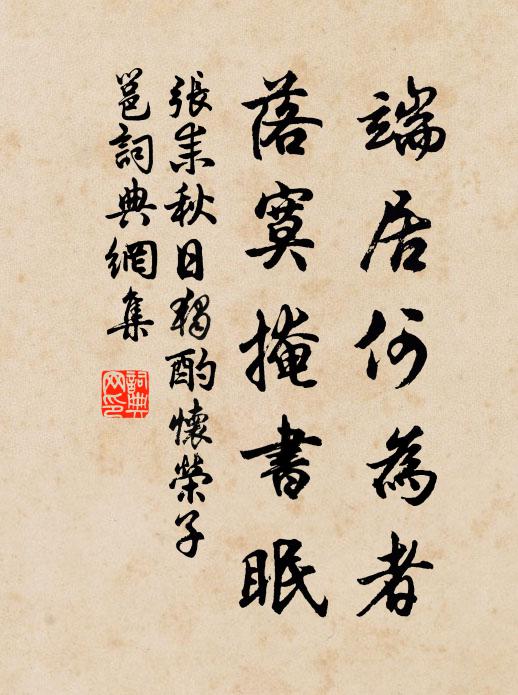 端居何為者
落寞掩書眠
張耒秋日獨酌懷榮子
邕詞典網集
詞典网印